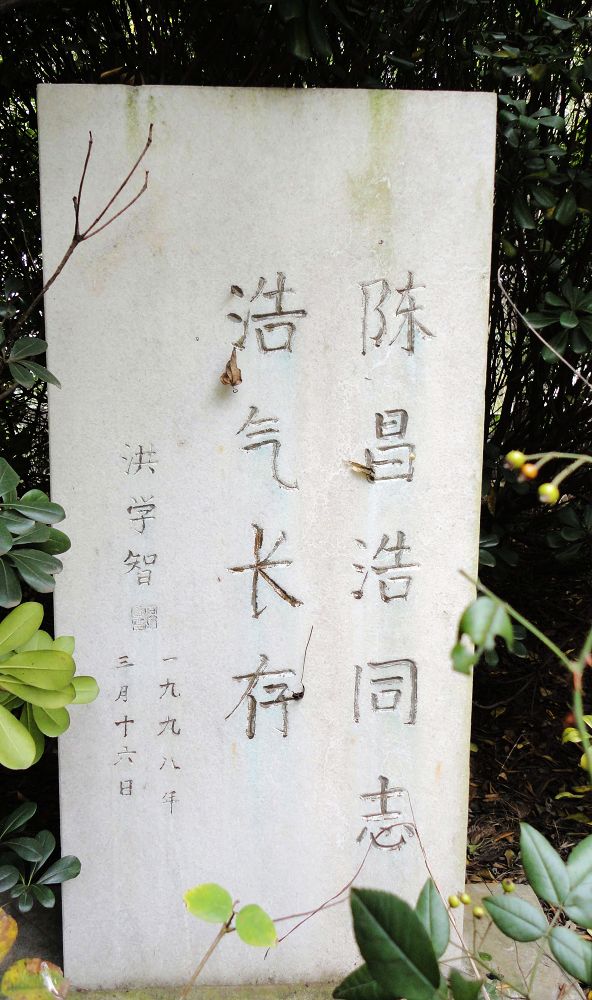 陈昌浩同志
浩气长存
洪学智
一九九八年
三月十六日